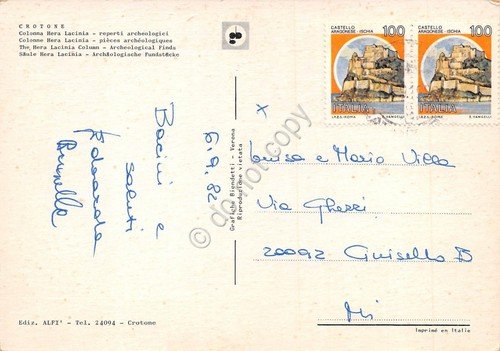 CROTONE
Colonna Hera Lacinia - reperti archeologici
Colonne Hera Lacinia - pièces archéologiques
The Hera Lacinia Column - Archeological Finds
Säule Hera Lacinia - Archäologische Fundstücke
CASTELLO
ARAGONESE - ISCHIA
100
ITALIA
I.P.Z.S. - ROMA
E. VANGELLI
CASTELLO
ARAGONESE - ISCHIA
100
ITALIA
I.P.Z.S. - ROMA
E. VANGELLI
x
6.9.82
Bacini e
saluti
Edoarda
Brunella
Grafiche Biondetti - Verona
Riproduzione vietata
Luisa e Mario Villa
Via Gherzi
20092 Cinisello B
Mi
do not copy
Ediz. ALFI' - Tel. 24094 - Crotone
Imprimé en Italie